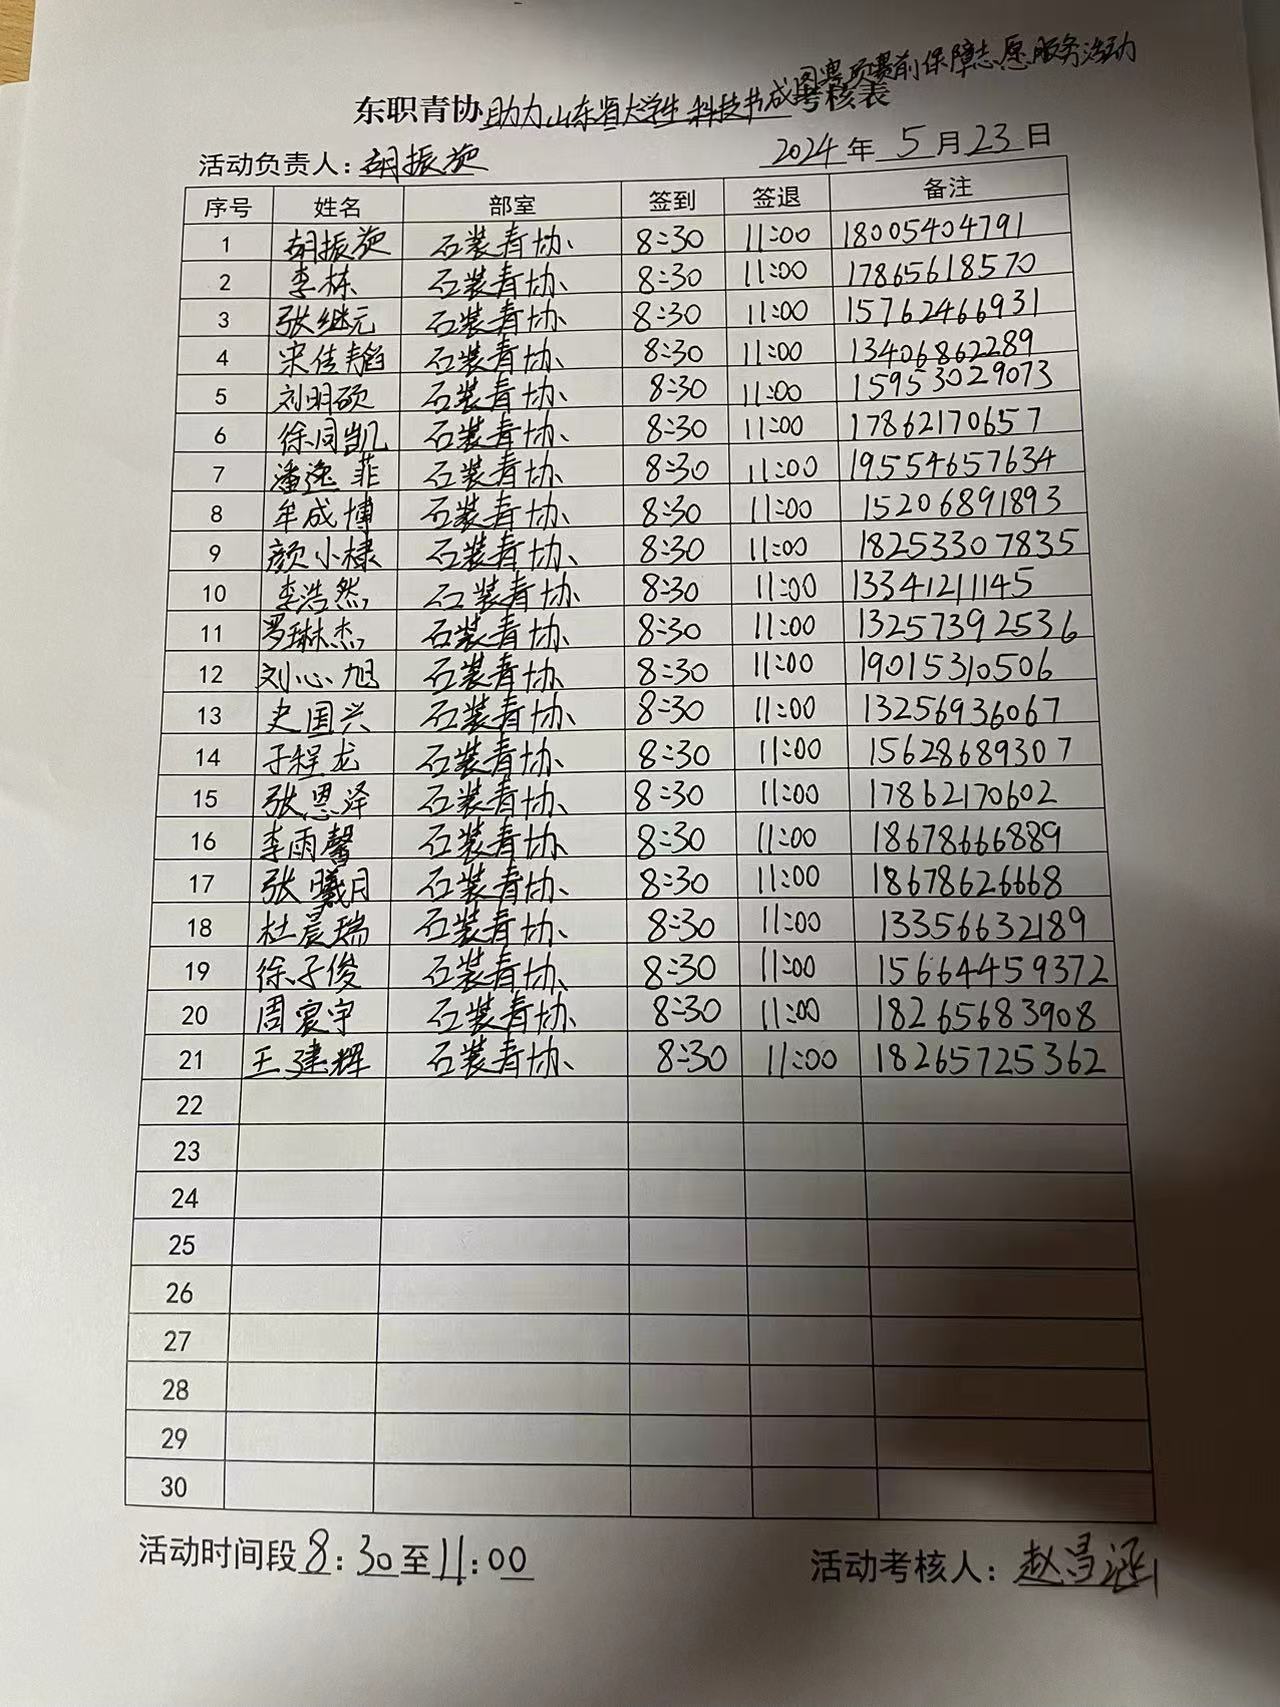 图赛项赛前保障志愿服务活动
东职青协助力山东省大学生科技节成考核表
活动负责人：胡振旋 2024年5月23日
序号 姓名 部室 签到 签退 备注
1 胡振旋 石装青协 8:30 11:00 18005404791
2 李栋 石装青协 8:30 11:00 17865618570
3 张继元 石装青协 8:30 11:00 15762466931
4 宋佳韬 石装青协 8:30 11:00 13406862289
5 刘明硕 石装青协 8:30 11:00 15953029073
6 徐同凯 石装青协 8:30 11:00 17862170657
7 潘逸菲 石装青协 8:30 11:00 19554657634
8 牟成博 石装青协 8:30 11:00 15206891893
9 颜小棣 石装青协 8:30 11:00 18253307835
10 李浩然 石装青协 8:30 11:00 13341211145
11 罗琳杰 石装青协 8:30 11:00 13257392536
12 刘心旭 石装青协 8:30 11:00 19015310506
13 史国兴 石装青协 8:30 11:00 13256936067
14 于程龙 石装青协 8:30 11:00 15628689307
15 张恩泽 石装青协 8:30 11:00 17862170602
16 李雨馨 石装青协 8:30 11:00 18678666889
17 张曦月 石装青协 8:30 11:00 18678626668
18 杜晨瑞 石装青协 8:30 11:00 13356632189
19 徐子俊 石装青协 8:30 11:00 15664459372
20 周寰宇 石装青协 8:30 11:00 18265683908
21 王建辉 石装青协 8:30 11:00 18265725362
22
23
24
25
26
27
28
29
30
活动时间段8:30至11:00 活动考核人：赵昌涵